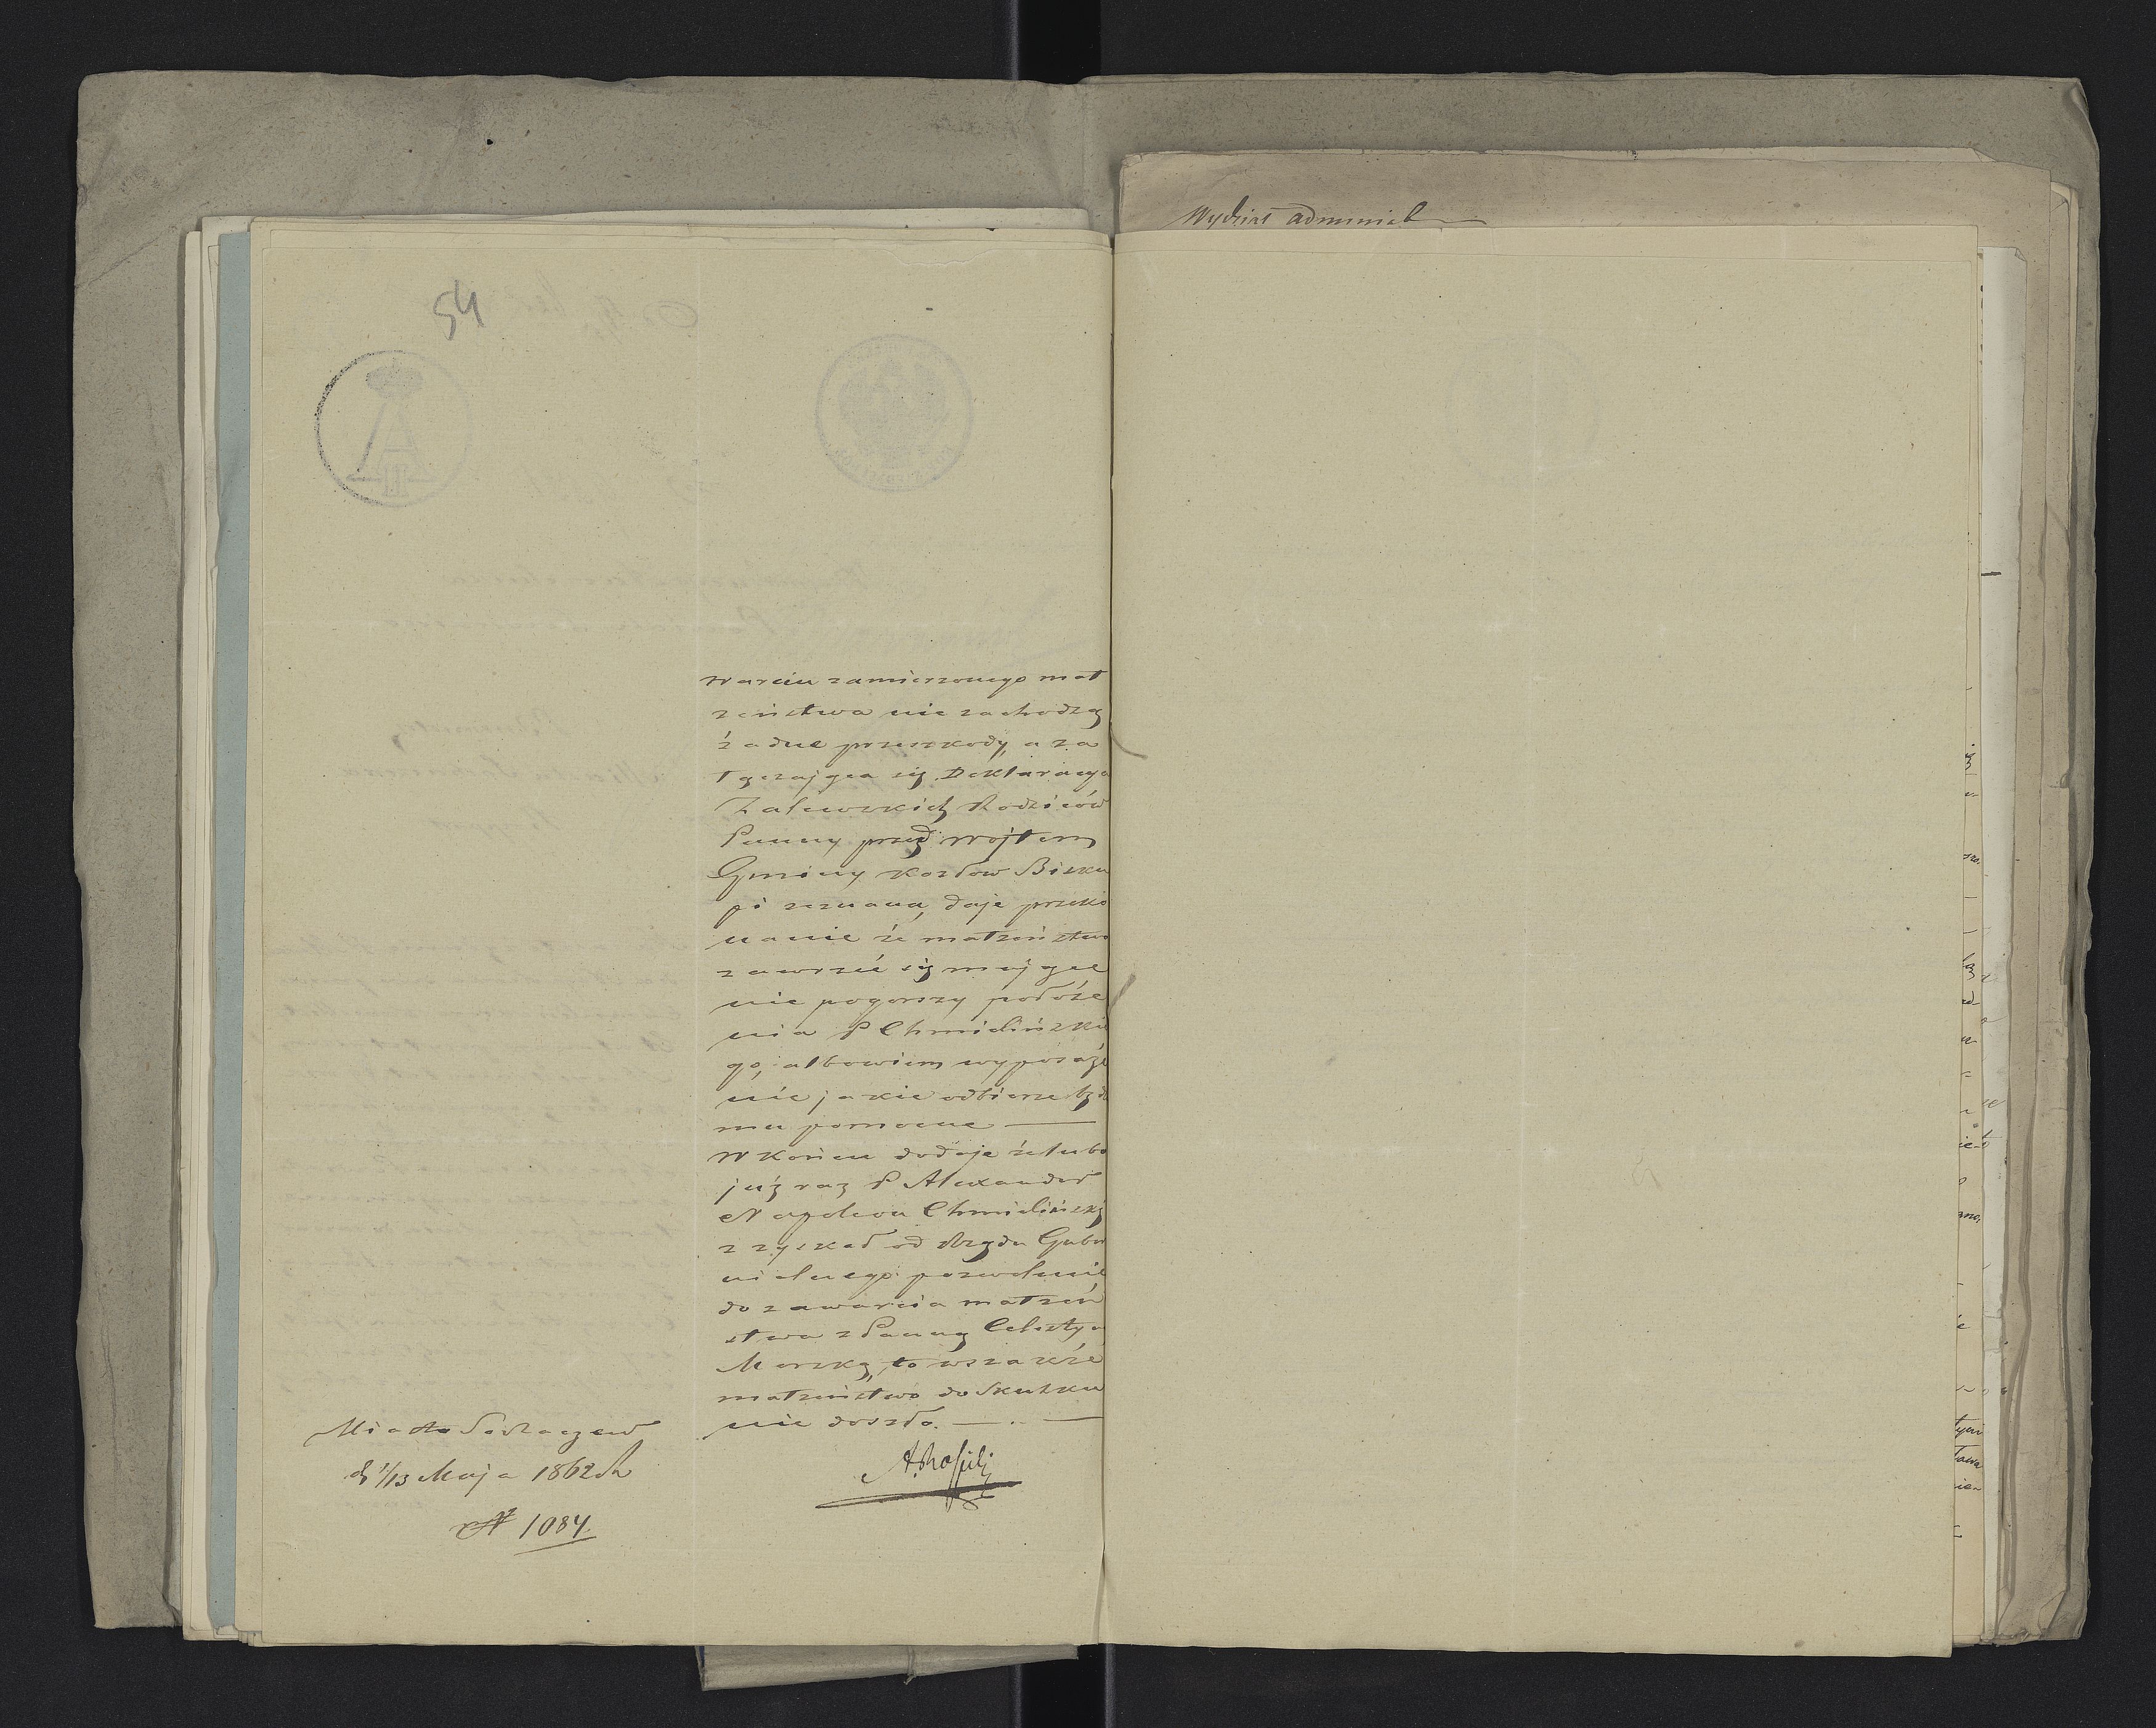 Wydział administ
54
warciu zamierzonego mał
żeństwa nie zachodzą
żadne przeszkody, a za
łączająca się Deklaracya
Zalewskich Rodziców
Panny przed Wojtem
Gminy Kozłow Bisku
pi zeznana, daje przeko
nanie że małżeństwo
zawrzeć się mające
nie pogorszy położe
nia P Chmielińskie
go, albowiem wyposaże
nie jakie odbierze będ
mu pomocne
W Końcu dodaje że lubo
już raz P Alexander
Napoleon Chmieliński
zyskał od Rządu Guber
nialnego pozwolenie
do zawarcia małżeń
stwa z Panną Celesty
Morską, to wszakże
małżeństwo do skutku
nie doszło.
Miasto Sochaczew
d 1/13 Maja 1862 R
N 1084.